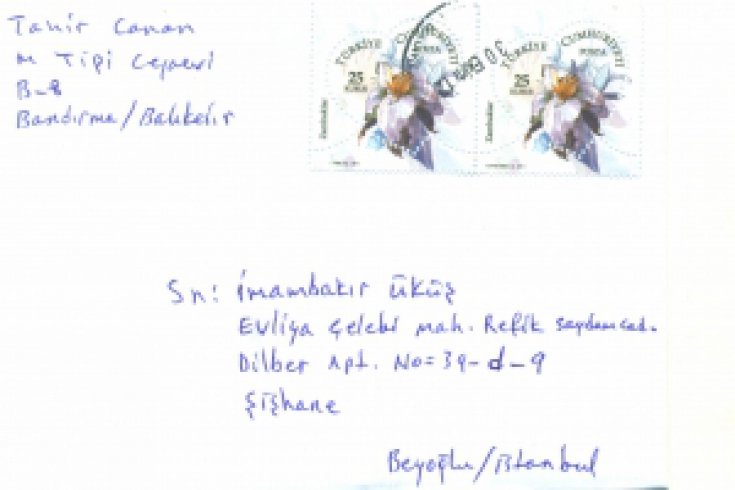 Tahir Canan
M Tipi Cezaevi
B-8
Bandırma/Balıkesir
TÜRKİYE CUMHURİYETİ
POSTA
25
KURUŞ
TÜRKİYE CUMHURİYETİ
POSTA
25
KURUŞ
30
Sn: İmambakır Üküş
Evliya Çelebi mah. Refik Saydam cad.
Dilber Apt. No=39-d-9
Şişhane
Beyoğlu/İstanbul